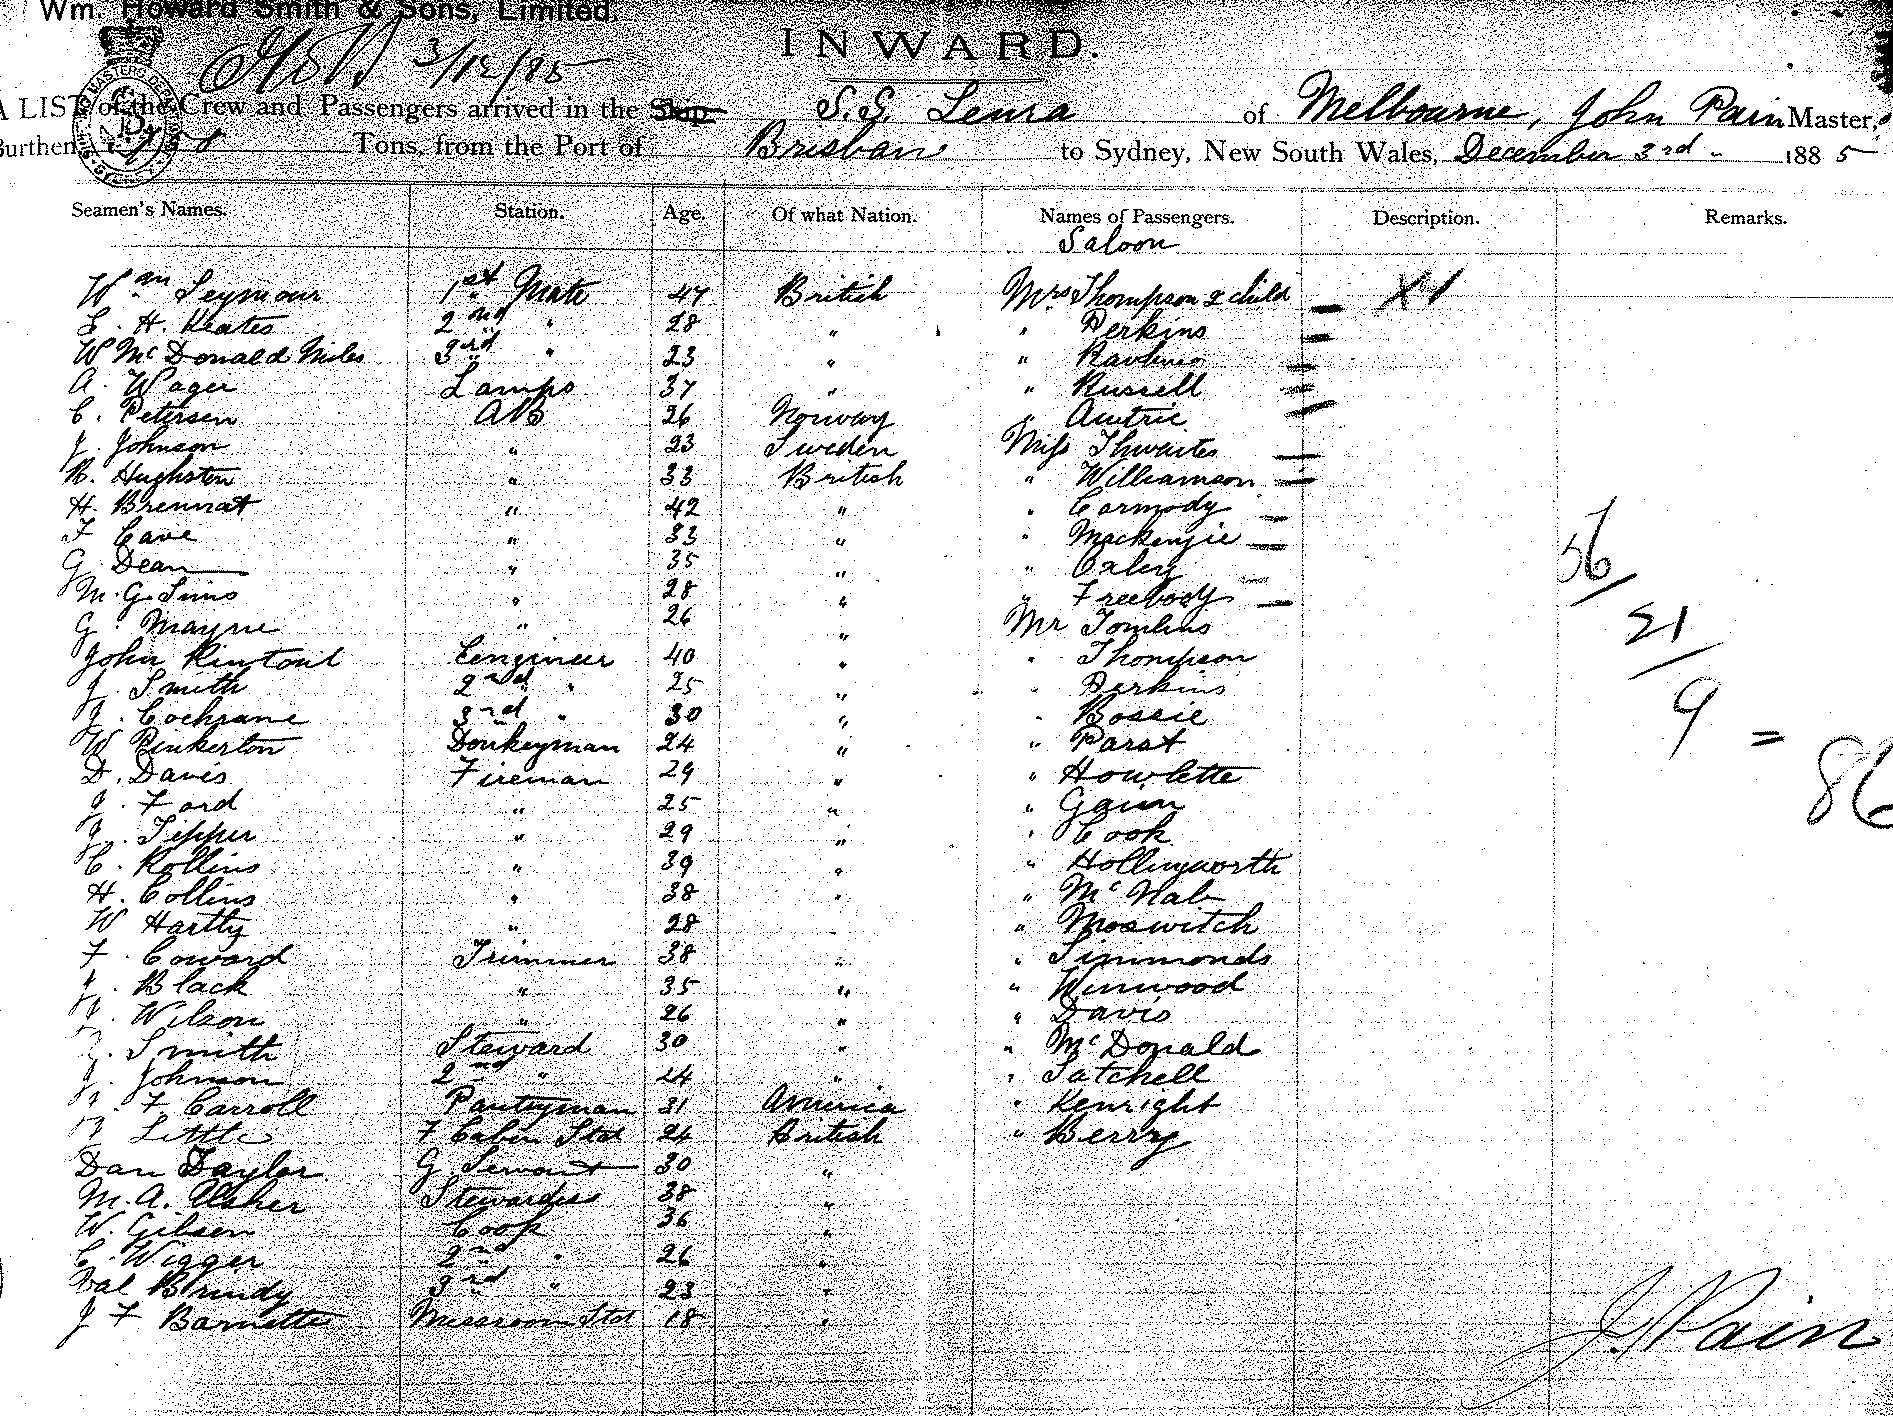 Wm. Howard Smith & Sons, Limited.
3/12/85
INWARD.
A LIST of the Crew and Passengers arrived in the Ship S.S. Leura of Melbourne, John Pain Master,
Burthen Tons, from the Port of Brisbane to Sydney, New South Wales, December 3rd 1885
Seamen's Names. Station. Age. Of what Nation. Names of Passengers. Description. Remarks.
Saloon
Wm Seymour 1st Mate 47 British Mrs Thompson & child X1
E. H. Keates 2nd " 28 " " Perkins
W McDonald Miles 3rd " 23 " " Rawlins
A. Wager Lamps 37 " " Russell
C. Petersen AB 26 Norway "
J. Johnson " 23 Sweden Miss Thwaites
R. Hughston " 33 British " Williamson
H. Brennat " 42 " " Carmody
F Cave " 33 " " Mackenzie
G Dean " 35 " " Oxley
M. G. Sims " 28 " " Freebody
G. Mayne " 26 " Mr Tomlins
John Rintoul Engineer 40 " " Thompson
J. Smith 2nd " 25 " " Perkins
J. Cochrane 3rd " 30 " " Bossie
W Pinkerton Donkeyman 24 " " Parat
D. Davis Fireman 29 " " Howlette
J. Ford " 25 " " Gaun
J. Tepper " 29 " " Cook
C. Rollins " 39 " " Hollingworth
H. Collins " 38 " " McNab
W Hartly " 28 " Moswitch
F. Coward Trimmer 38 " " Simmonds
J. Black " 35 " " Winwood
J. Wilson " 26 " " Davis
Smith Steward 30 " " McDonald
J. Johnson 2nd " 24 " " Satchell
F Carroll Pantryman 31 America " Kenright
Little F Cabin Std 24 British " Berry
Dan Taylor G Servant 30 "
M. A. Usher Stewardess 38 "
W. Gibson Cook 36 "
C. Wigger 2nd " 26 "
Val Brundy 3rd " 23 "
J F Barnette Messroom Std 18 "
56/
21/
9 = 86
J. Pain